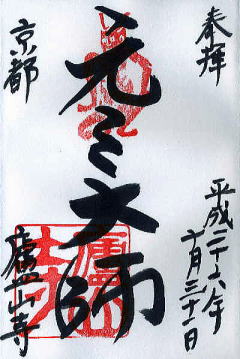 奉拝
平成二十六年
十月三十一日
元三大師
京都
廬山寺